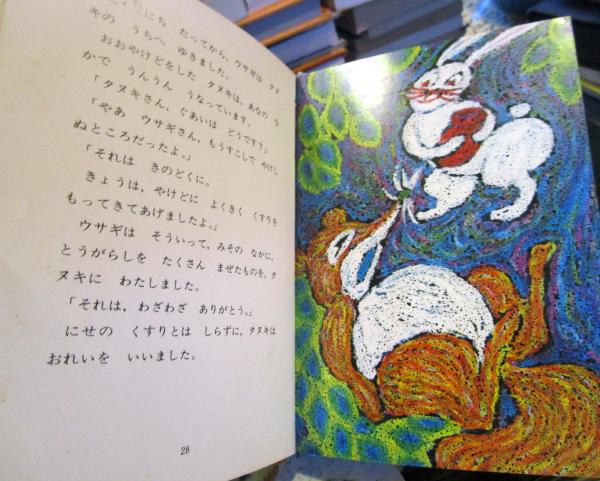 にち たってから、ウサギは タヌ
キの うちへ ゆきました。
おおやけどをした タヌキは、あなの な
かで うんうん うなっています。
「タヌキさん、ぐあいは どうです?」
「やあ ウサギさん、もうすこしで やけし
ぬところだったよ。」
「それは きのどくに。
きょうは、やけどに よくきく くすりを
もってきてあげましたよ。」
ウサギは そういって、みその なかに、
とうがらしを たくさん まぜたものを、タ
ヌキに わたしました。
「それは、わざわざ ありがとう。」
にせの くすりとは しらずに、タヌキは
おれいを いいました。
28